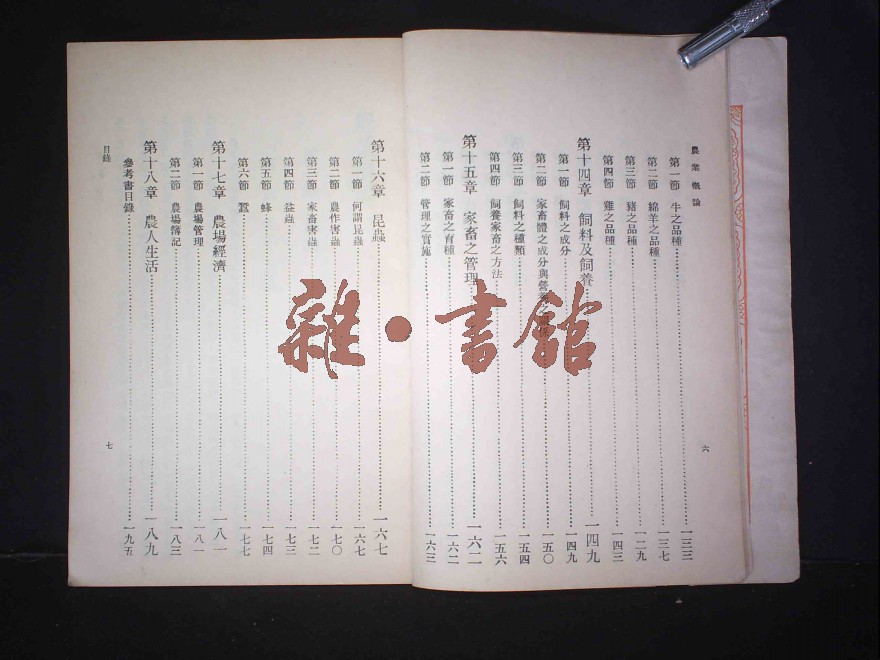 農業概論
第一節 牛之品種 一三三
第二節 綿羊之品種 一三七
第三節 豬之品種 一二九
第四節 雞之品種 一四三
第十四章 飼料及飼養 一四九
第一節 飼料之成分 一四九
第二節 家畜體之成分與營養之 一五〇
第三節 飼料之種類 一五四
第四節 飼養家畜之方法 一五六
第十五章 家畜之管理 一六二
第一節 家畜之育種 一六二
第二節 管理之實施 一六三
六
第十六章 昆蟲 一六七
第一節 何謂昆蟲 一六七
第二節 農作害蟲 一七〇
第三節 家畜害蟲 一七二
第四節 益蟲 一七三
第五節 蜂 一七四
第六節 蠶 一七七
第十七章 農場經濟 一八一
第一節 農場管理 一八一
第二節 農場簿記 一八三
第十八章 農人生活 一八九
參考書目錄 一九五
目錄
七
雜·書館